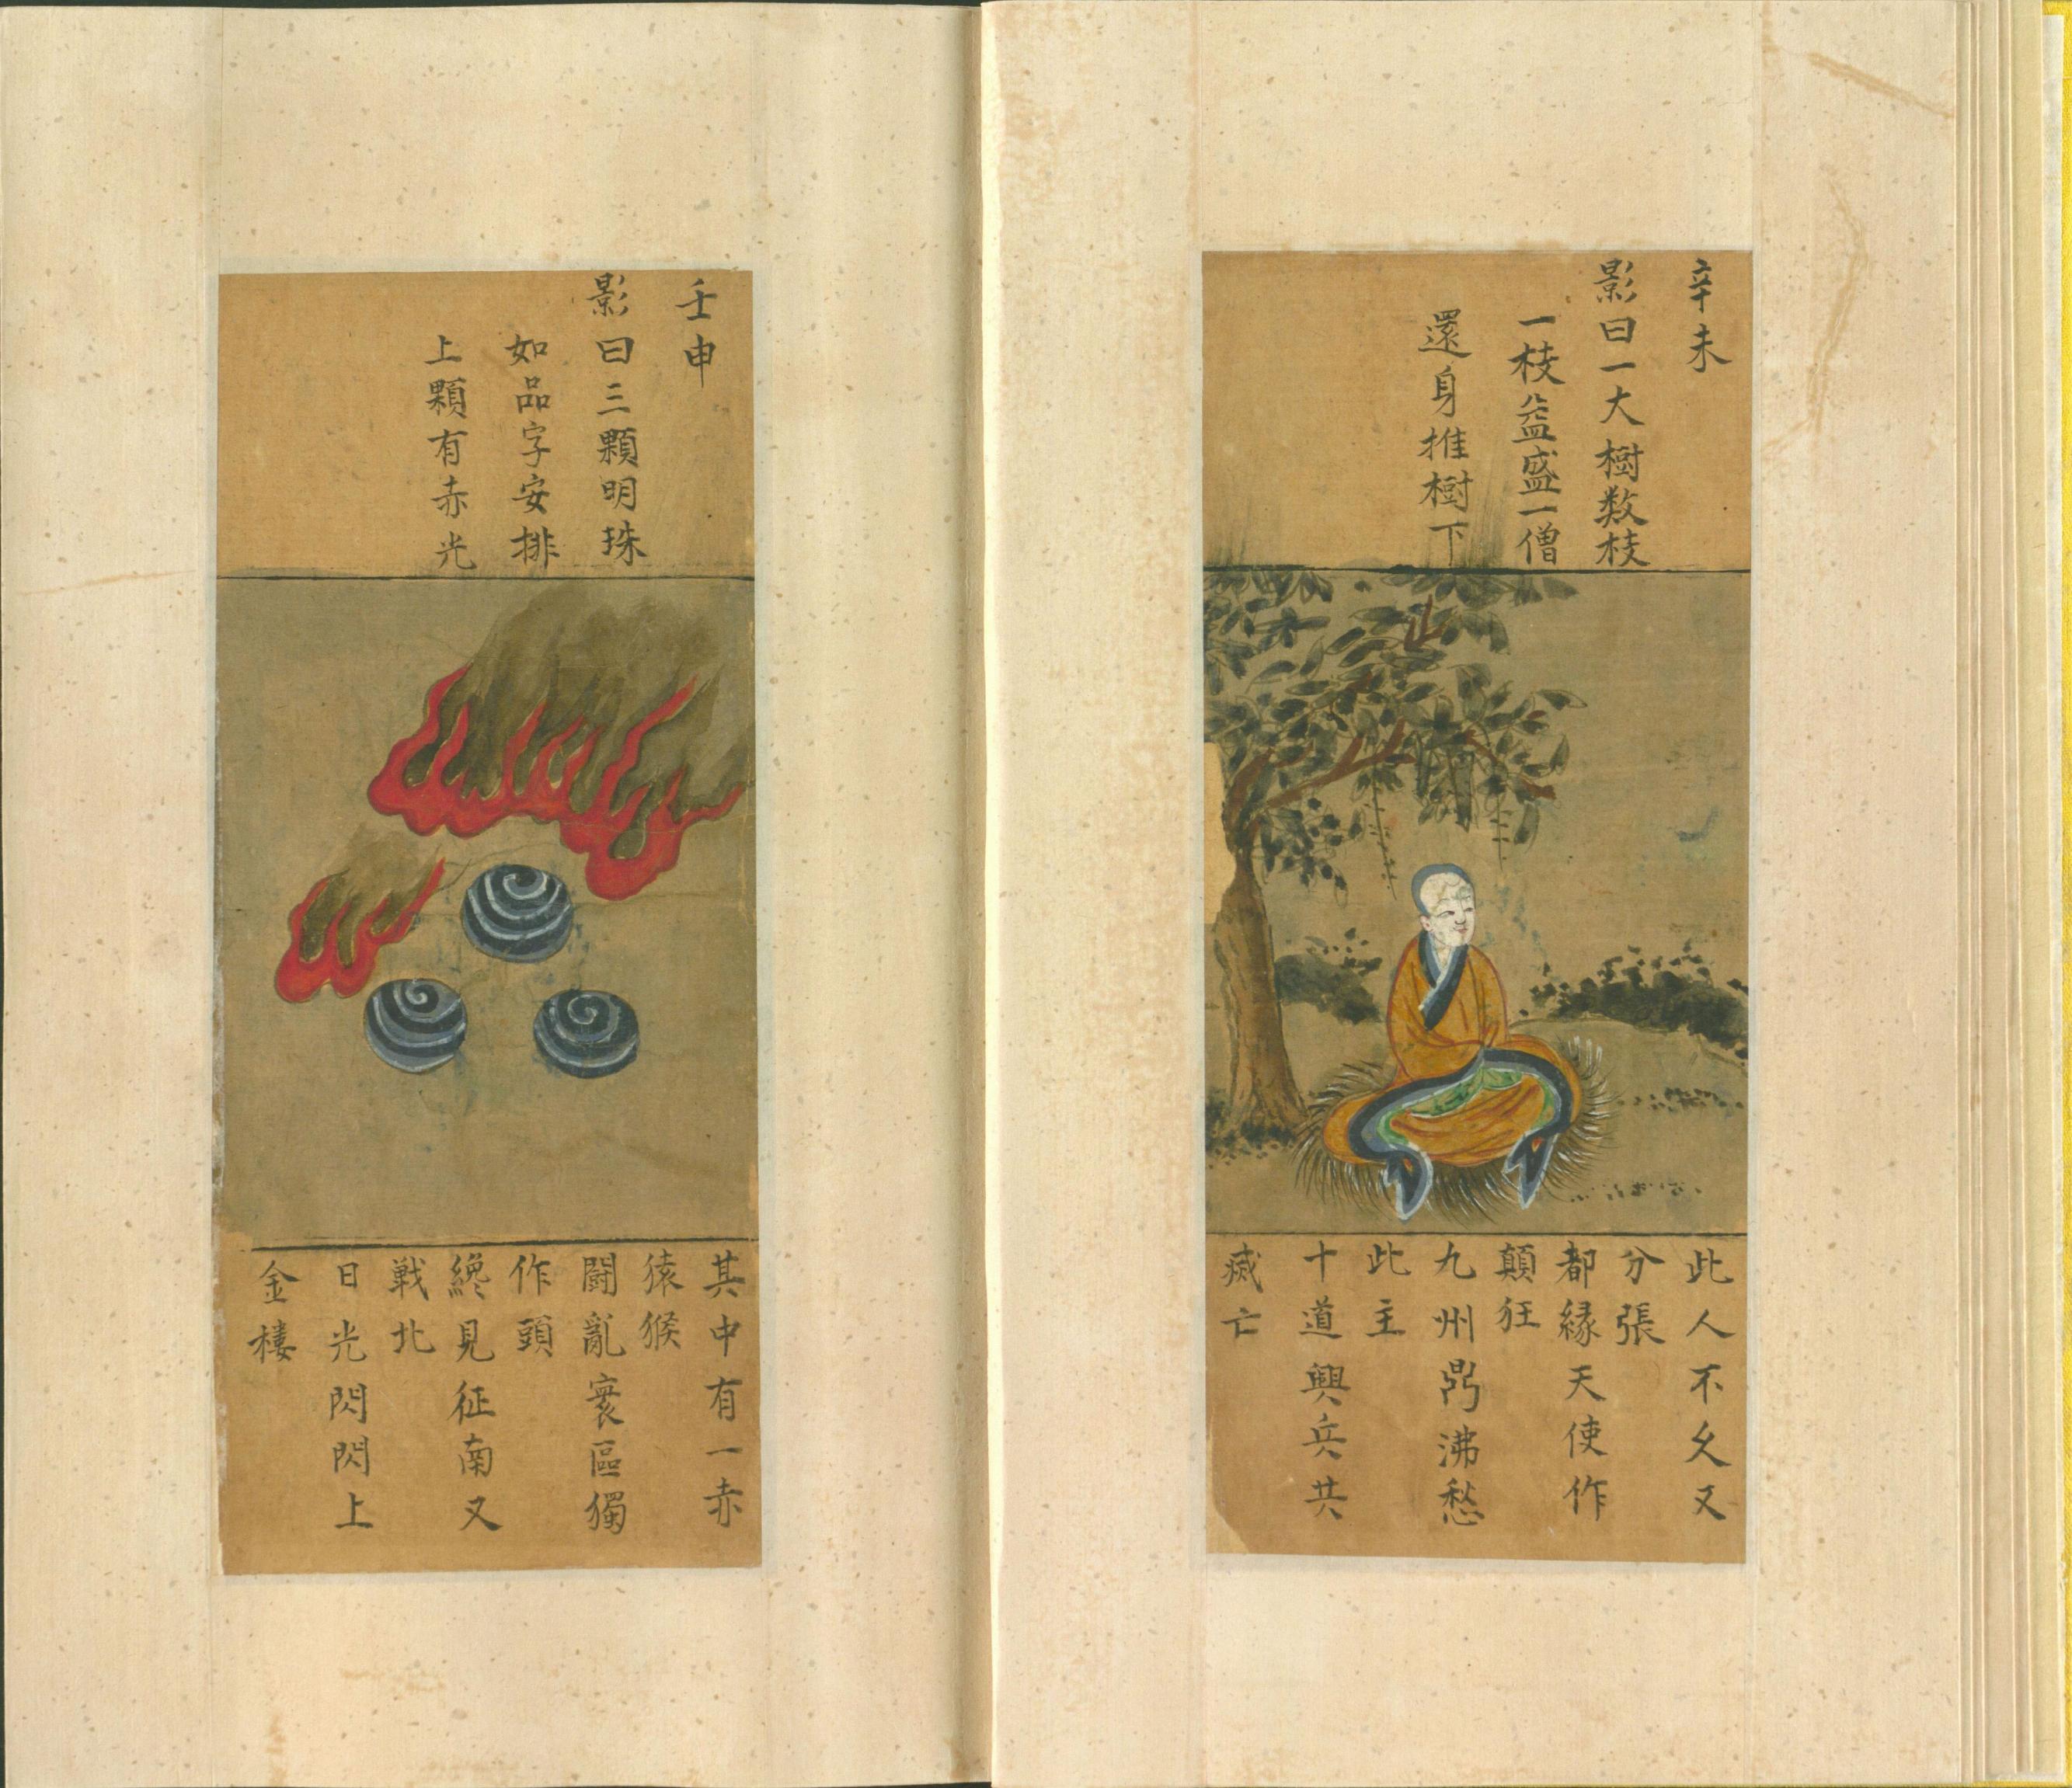 辛未
影曰一大樹数枝
一枝益盛一僧
還身推樹下
此人不久又
分張
都縁天使作
顛狂
九州鼎沸愁
此主
十道興兵共
滅亡
壬申
影曰三顆明珠
如品字安排
上顆有赤光
其中有一赤
猿猴
闘亂寰區獨
作頭
纔見征南又
戦北
日光閃閃上
金樓